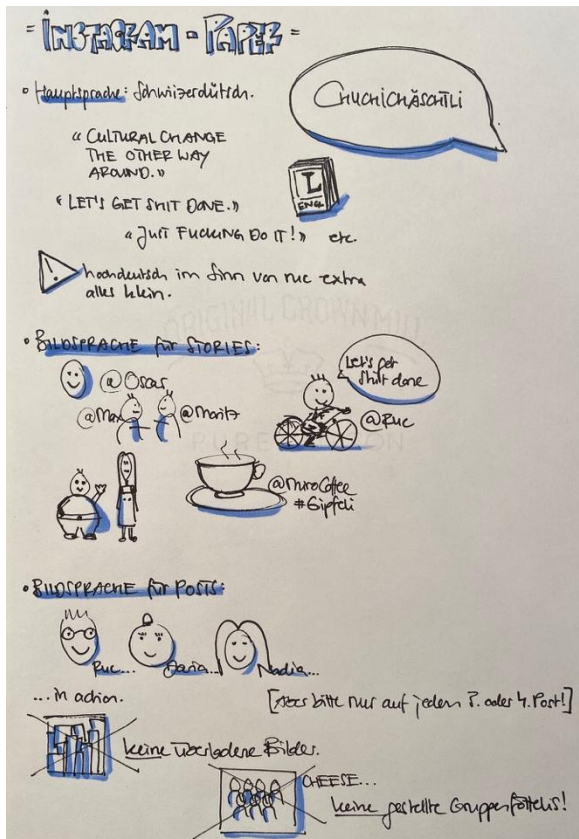 = INSTAGRAM - PAPER =
• Hauptsprache: Schwiizerdütsch.
CHUCHICHÄSCHTLI
« CULTURAL CHANGE
THE OTHER WAY
AROUND. »
« LET'S GET SHIT DONE. »
L
ENGL
« JUST FUCKING DO IT! » etc.
! hochdeutsch im Sinn von ruc extra
alles klein.
ORIGINAL CROWN MILL
• BILDSPRACHE für STORIES:
@Oscar
Let's get
shit done
@Max @Moritz
@Ruc
PURE COTTON
@MiróCoffee
#Gipfeli
• BILDSPRACHE für POSTS:
Ruc... Daria... Nadia...
... in action.
[Aber bitte nur auf jedem 3. oder 4. Post!]
keine überladene Bilder.
CHEESE...
keine gestellte Gruppefötteli!